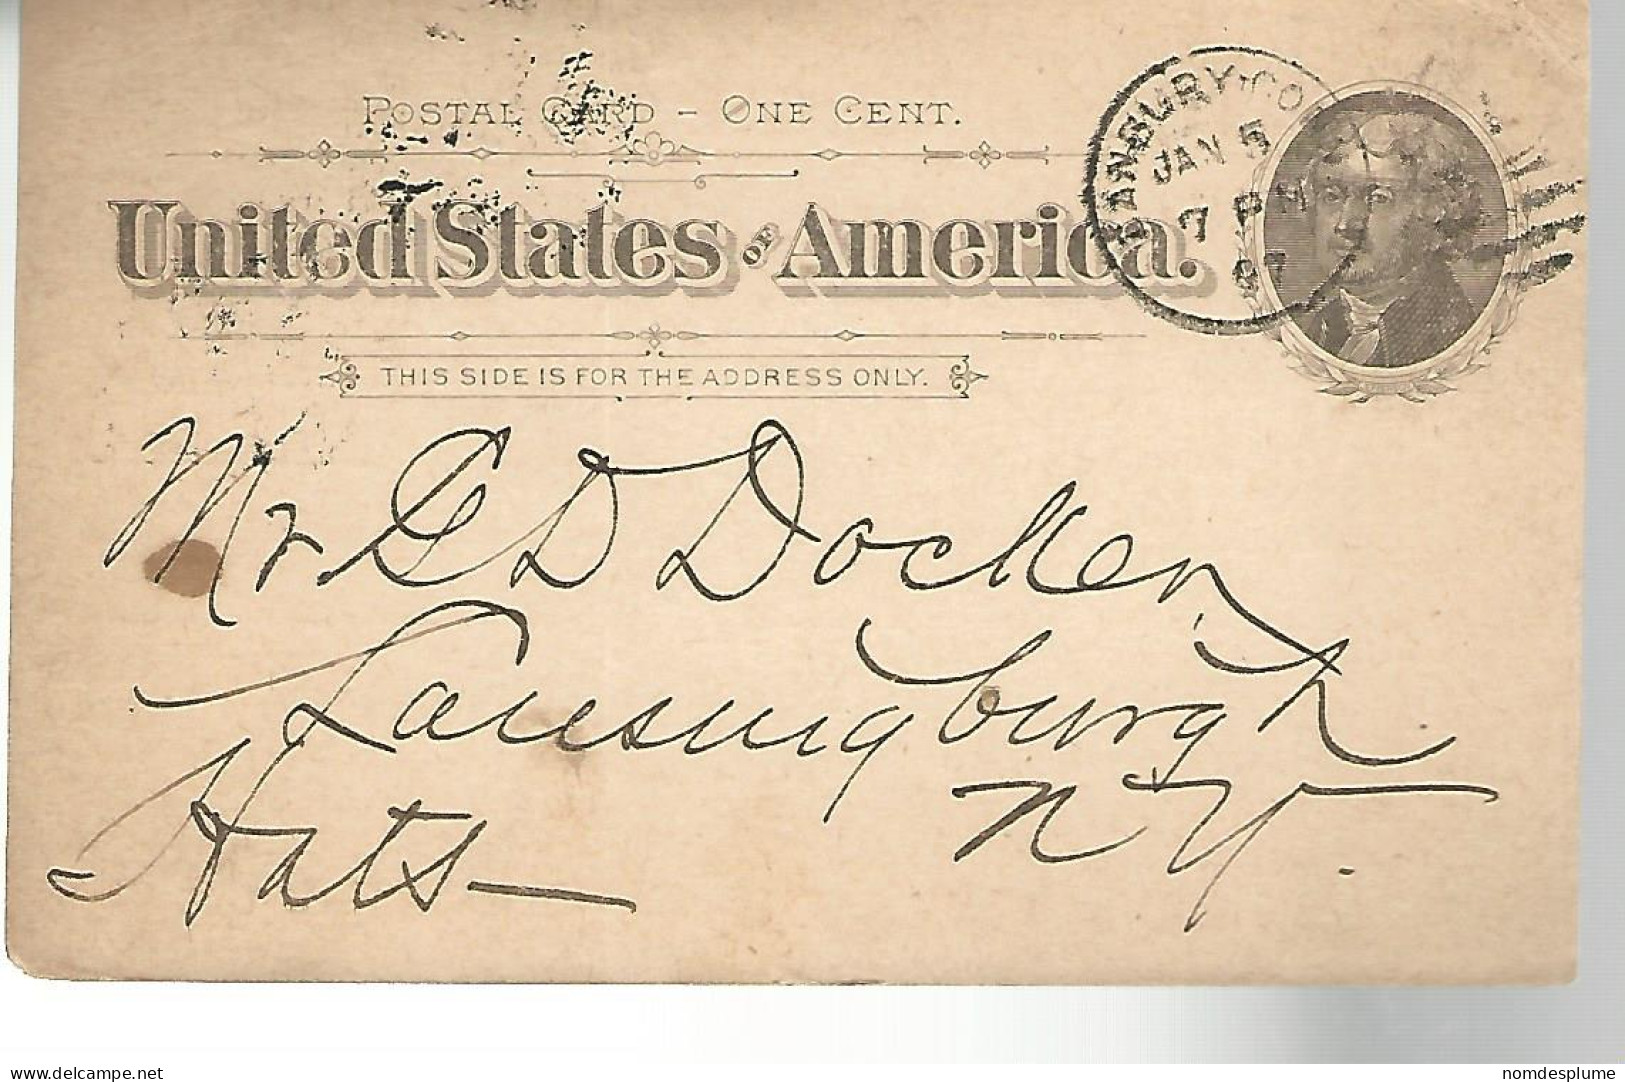 POSTAL CARD – ONE CENT.
United States OF America.
THIS SIDE IS FOR THE ADDRESS ONLY.
DANBURY, CO
JAN 5
7 PM
97
Mr G D Docken
Lansingburgh
N Y.
Hats —
delcampe.net
nomdesplume